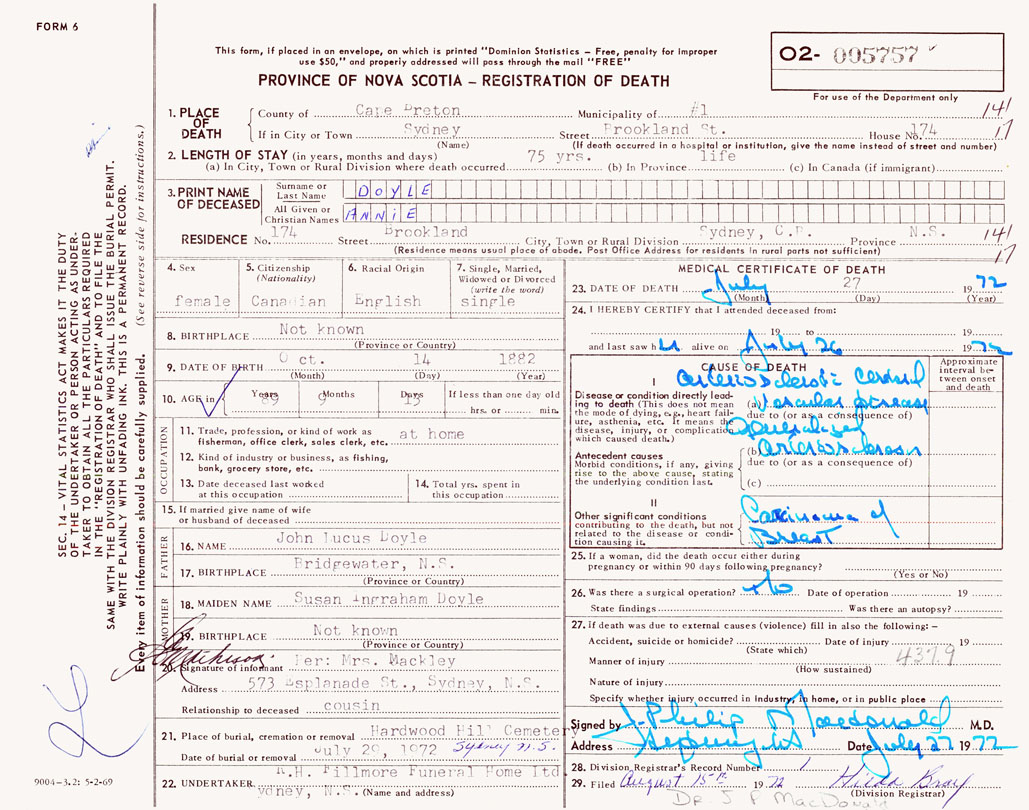 FORM 6
This form, if placed in an envelope, on which is printed "Dominion Statistics – Free, penalty for improper
use $50," and properly addressed will pass through the mail "FREE"
PROVINCE OF NOVA SCOTIA – REGISTRATION OF DEATH
O2- 005757
For use of the Department only
SEC. 14 – VITAL STATISTICS ACT MAKES IT THE DUTY
OF THE UNDERTAKER OR PERSON ACTING AS UNDER-
TAKER TO OBTAIN ALL THE PARTICULARS REQUIRED
IN THE "REGISTRATION OF DEATH" AND FILE THE
SAME WITH THE DIVISION REGISTRAR WHO SHALL ISSUE THE BURIAL PERMIT.
WRITE PLAINLY WITH UNFADING INK. THIS IS A PERMANENT RECORD.
Every item of information should be carefully supplied. (See reverse side for instructions.)
1. PLACE OF DEATH
County of Cape Breton Municipality of #1 141
If in City or Town Sydney Street Brookland St. House No. 174 17
(Name) (If death occurred in a hospital or institution, give the name instead of street and number)
2. LENGTH OF STAY (in years, months and days) 75 yrs. life
(a) In City, Town or Rural Division where death occurred (b) In Province (c) In Canada (if immigrant)
3. PRINT NAME OF DECEASED
Surname or Last Name DOYLE
All Given or Christian Names ANNIE
RESIDENCE No. 174 Street Brookland City, Town or Rural Division Sydney, C.B. Province N.S. 141
(Residence means usual place of abode. Post Office Address for residents in rural parts not sufficient) 17
4. Sex
female
5. Citizenship
(Nationality)
Canadian
6. Racial Origin
English
7. Single, Married,
Widowed or Divorced
(write the word)
single
8. BIRTHPLACE Not known
(Province or Country)
9. DATE OF BIRTH Oct. 14 1882
(Month) (Day) (Year)
10. AGE in Years 89 Months 9 Days 13 If less than one day old
hrs. or min.
OCCUPATION
11. Trade, profession, or kind of work as
fisherman, office clerk, sales clerk, etc. at home
12. Kind of industry or business, as fishing,
bank, grocery store, etc.
13. Date deceased last worked
at this occupation
14. Total yrs. spent in
this occupation
15. If married give name of wife
or husband of deceased
FATHER
16. NAME John Lucus Doyle
17. BIRTHPLACE Bridgewater, N.S.
(Province or Country)
MOTHER
18. MAIDEN NAME Susan Ingraham Doyle
19. BIRTHPLACE Not known
(Province or Country)
20. Signature of informant Per: Mrs. Mackley
Address 573 Esplanade St., Sydney, N.S.
Relationship to deceased cousin
21. Place of burial, cremation or removal Hardwood Hill Cemetery
Date of burial or removal July 29, 1972 Sydney N.S.
22. UNDERTAKER A.H. Fillmore Funeral Home Ltd
Sydney, N.S. (Name and address)
9004-3.2: 5-2-69
MEDICAL CERTIFICATE OF DEATH
23. DATE OF DEATH July 27 1972
(Month) (Day) (Year)
24. I HEREBY CERTIFY that I attended deceased from:
19 to 19
and last saw her alive on July 26 1972
CAUSE OF DEATH
Approximate
interval be-
tween onset
and death
I
Disease or condition directly lead-
ing to death (This does not mean
the mode of dying, e.g., heart fail-
ure, asthenia, etc. It means the
disease, injury, or complication
which caused death.)
Arteriosclerotic Cerebral
(a) Vascular Disease
due to (or as a consequence of)
Generalized
(b) Arteriosclerosis
Antecedent causes
Morbid conditions, if any, giving
rise to the above cause, stating
the underlying condition last.
due to (or as a consequence of)
(c)
II
Other significant conditions
contributing to the death, but not
related to the disease or condi-
tion causing it.
Carcinoma of
Breast
25. If a woman, did the death occur either during
pregnancy or within 90 days following pregnancy?
(Yes or No)
26. Was there a surgical operation? No Date of operation 19
State findings Was there an autopsy?
27. If death was due to external causes (violence) fill in also the following: –
Accident, suicide or homicide? Date of injury 19
(State which) 4379
Manner of injury
(How sustained)
Nature of injury
Specify whether injury occurred in industry, in home, or in public place
Signed by J. Philip Macdonald M.D.
Address Date July 27 1972
28. Division Registrar's Record Number 1
29. Filed August 15th 1972 Hilda Bray
(Division Registrar)
Dr. J P MacDonald